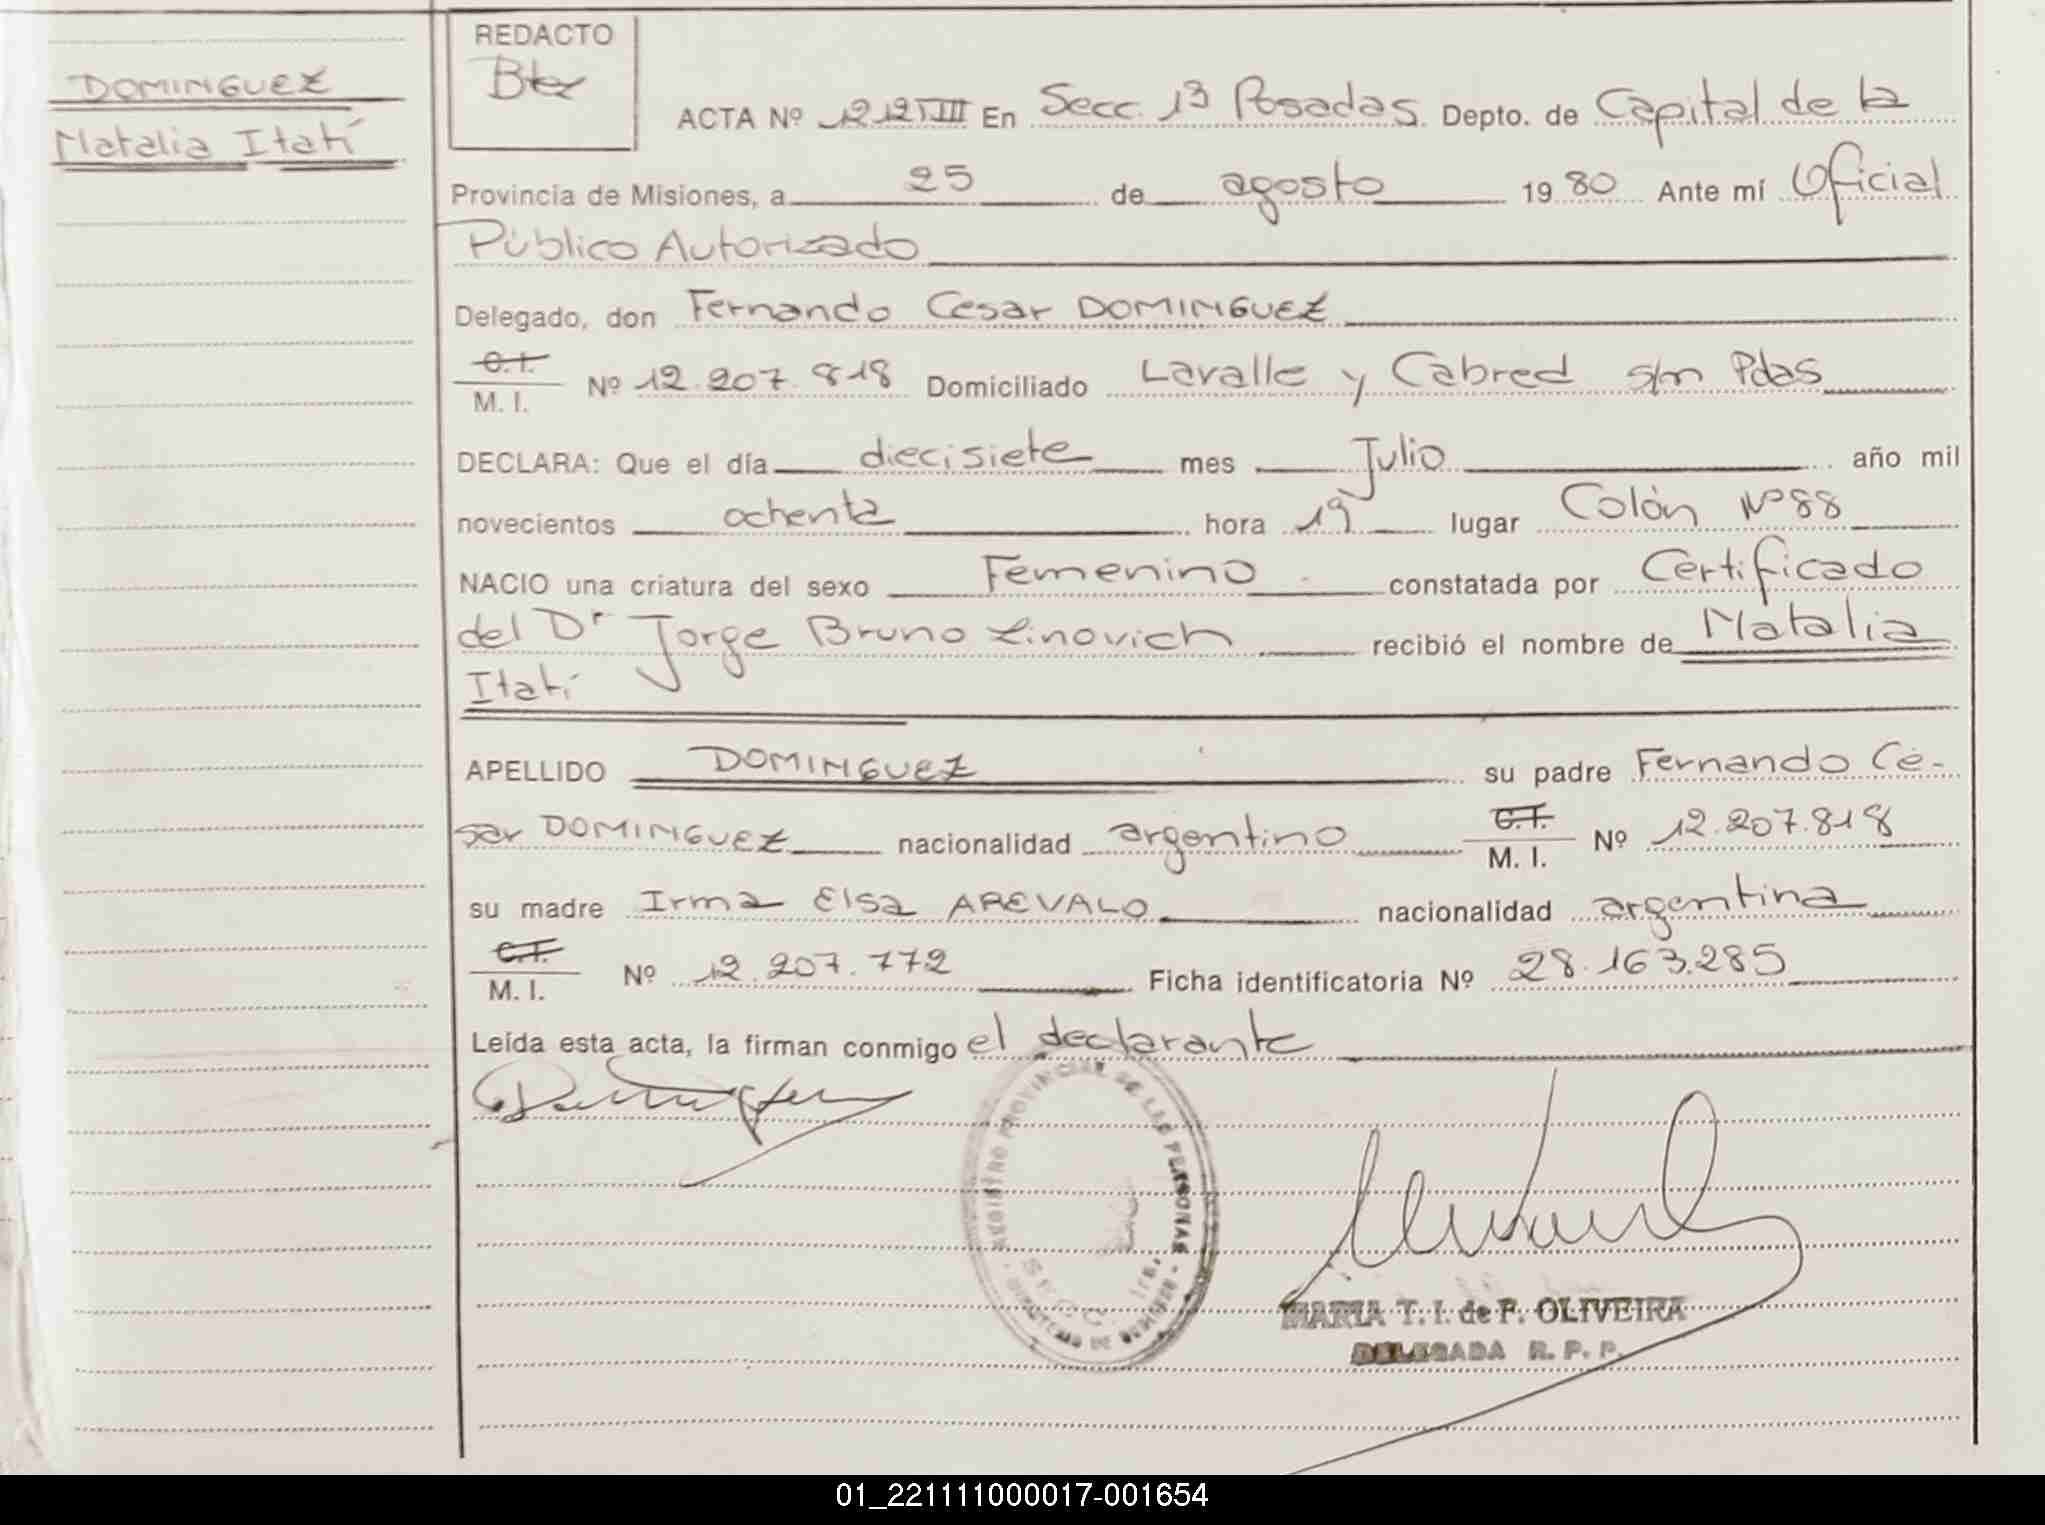 DOMINGUEZ
Natalia Itatí
REDACTO
ACTA Nº 1212TIII En Secc. 1ª Posadas. Depto. de Capital de la
Provincia de Misiones, a 25 de agosto 1980 Ante mí Oficial
Público Autorizado
Delegado, don Fernando Cesar DOMINGUEZ
C.I.
M. I. Nº 12.207.818 Domiciliado Lavalle y Cabred s/n Pdas
DECLARA: Que el día diecisiete mes Julio año mil
novecientos ochenta hora 19 lugar Colón Nº 88
NACIO una criatura del sexo Femenino constatada por Certificado
del Dr Jorge Bruno Linovich recibió el nombre de Natalia
Itatí
APELLIDO DOMINGUEZ su padre Fernando Cé-
sar DOMINGUEZ nacionalidad argentino C.I. M. I. Nº 12.207.818
su madre Irma Elsa AREVALO nacionalidad argentina
C.I.
M. I. Nº 12.207.772 Ficha identificatoria Nº 28.163.285
Leída esta acta, la firman conmigo el declarante
REGISTRO PROVINCIAL DE LAS PERSONAS
SECC. 1ra.
MARIA T. I. de F. OLIVEIRA
DELEGADA R. P. P.
01_221111000017-001654